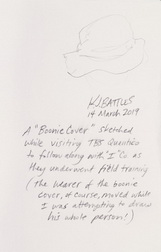 KJBATTLES
14 March 2019
A "Boonie Cover" sketched
while visiting TBS Quantico
to follow along with "I" Co as
they underwent field training
(the wearer of the boonie
cover, of course, moved while
I was attempting to draw
his whole person!)